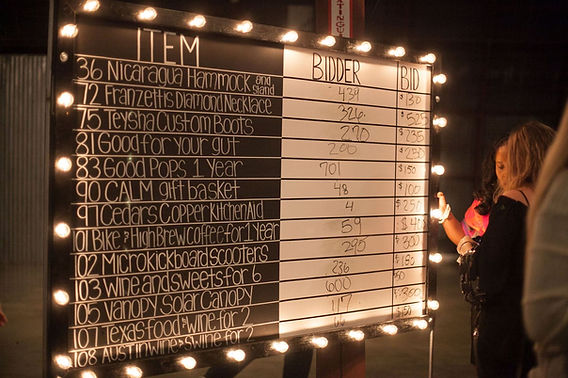 TINGUI
ITEM BIDDER BID
36 Nicaragua Hammock and stand 439 $130
72 Franzettis Diamond Necklace 326 $525
75 Teysha Custom Boots 270 $235
81 Good for your gut 200 $250
83 Good Pops 1 Year 701 $150
90 CALM gift basket 48 $100
97 Cedars Copper KitchenAid 4 $250
101 Bike & High Brew Coffee for 1 year 59
102 Microkickboard scooters 295 $300
103 wine and sweets for 6 236 $180
105 Vanopy Solar Canopy 600
107 Texas food & wine for 2 47
108 Austin wine & swine for 2